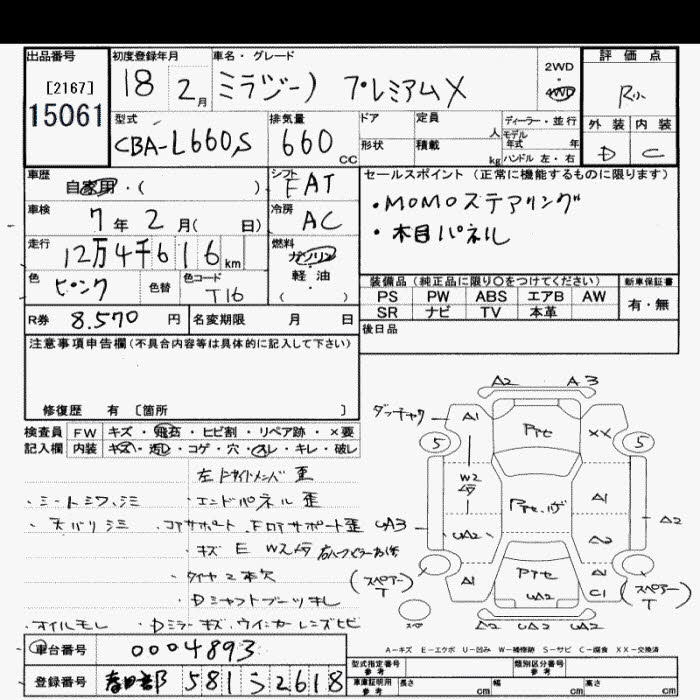 出品番号 初度登録年月 車名・グレード 評価点
[2167] 18 2月 ミラジーノ プレミアムX 2WD・4WD R小
15061 外装 内装
型式 排気量 ドア 定員 人 ディーラー・並行 D C
CBA-L660S 660 CC 形状 積載 kg モデル年式 年 ハンドル 左・右
車歴 シフト セールスポイント (正常に機能するものに限ります)
自家用・( ) FAT ・MOMOステアリング
車検 7年2月( 日) 冷房 AC ・木目パネル
走行 12万4千616km 燃料 ガソリン
色 ピンク 色替 色コード T16 軽・油 ( )
装備品 (純正品に限り○をつけてください) 新車保証書
PS PW ABS エアB AW 有・無
SR ナビ TV 本革
R券 8.570円 名変期限 月 日 後日品
注意事項申告欄(不具合内容等は具体的に記入して下さい)
修復歴 有 〔箇所 〕
検査員 FW キズ・飛石・ヒビ割・リペア跡・×要
記入欄 内装 キズ・汚レ・コゲ・穴・スレ・キレ・破レ
A2 A3
ダッチャク A1 Pテセ XX
5 5
W2 Pテセ A1
UA3 UA2 A2 A2
A1 Pテセ UA2 A1 C1
(スペアー T) (スペアー T)
スペア UA2
左 F サイドメンバ 歪
・シートシワ、シミ ・エンドパネル 歪
・天バリシミ ・コアサポート、Fロアサポート歪
・キズ E W2
・タイヤ2本欠
・Dシャフトブーツキレ
・オイルモレ ・Dミラーキズ、ウインカーレンズヒビ
A-キズ E-エクボ U-凹み W-補修跡 S-サビ C-腐食 XX-交換済
車台番号 0004893
登録番号 春日部 581 ラ 2618
型式指定番号 参考 類別区分番号 参考
車庫証明用 参考 長さ cm 幅 cm 高さ cm